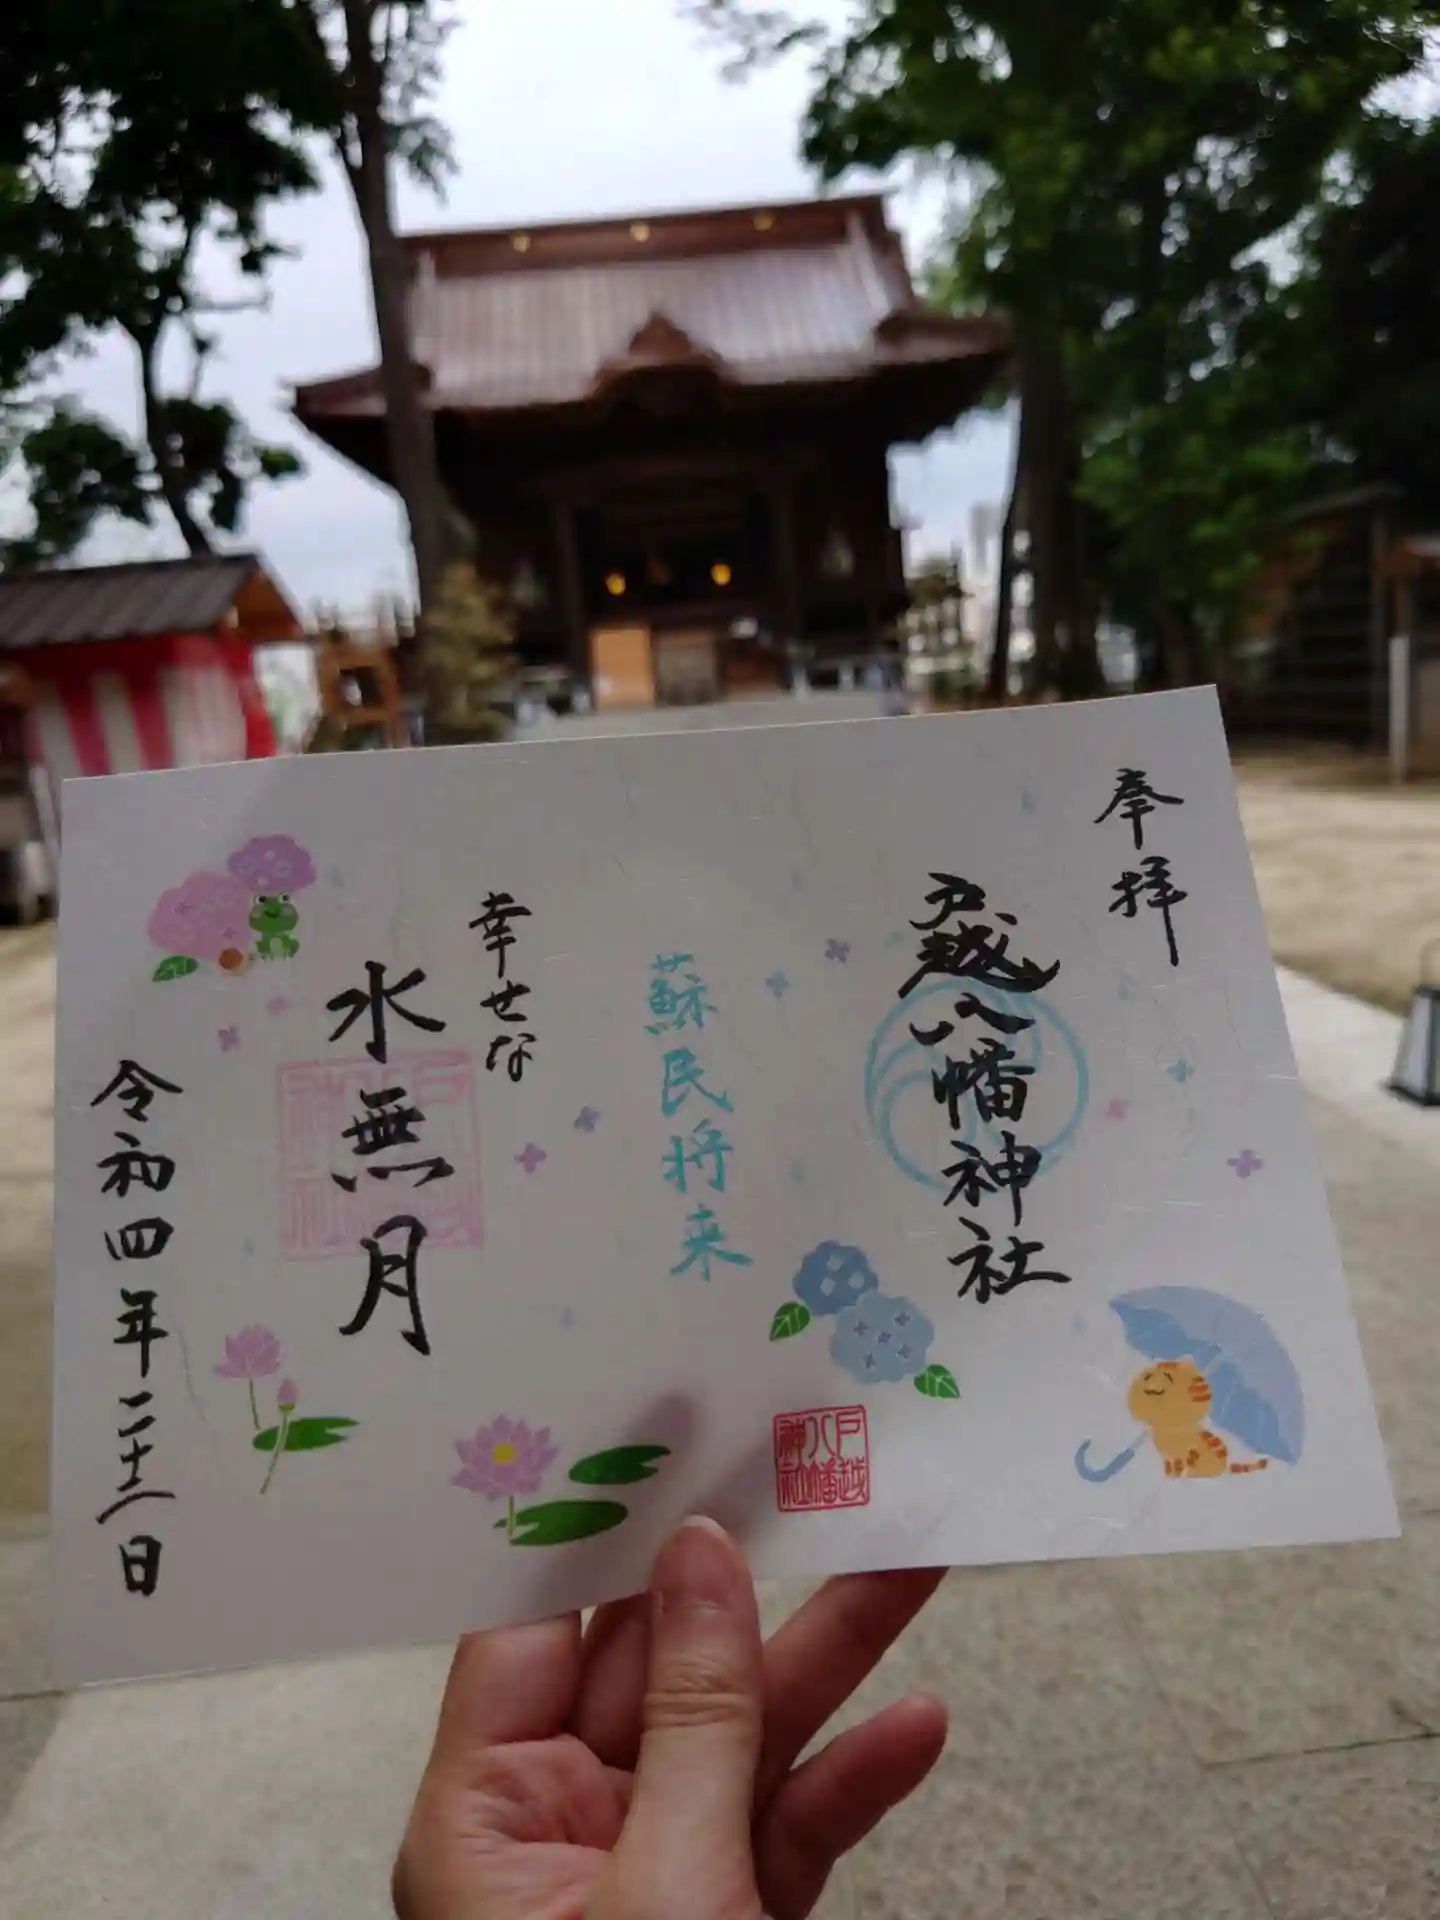 奉拝
戸越八幡神社
戸越八幡神社
蘇民将来
幸せな
水無月
戸越八幡神社
令和四年二十二日